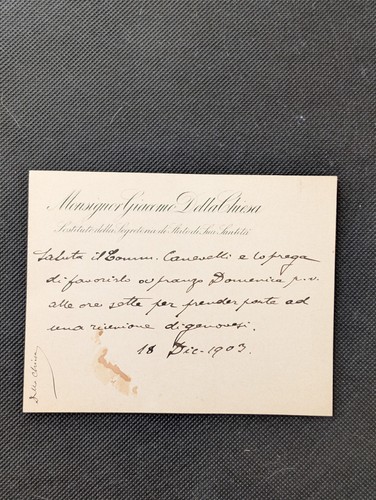 Monsignor Giacomo Della Chiesa
Sostituto della Segreteria di Stato di Sua Santità
Saluta il Comm. Canevelli e lo prega
di favorirlo a pranzo Domenica p.v.
alle ore sette per prender parte ad
una riunione di genovesi.
18 Dic. 1903.
Della Chiesa